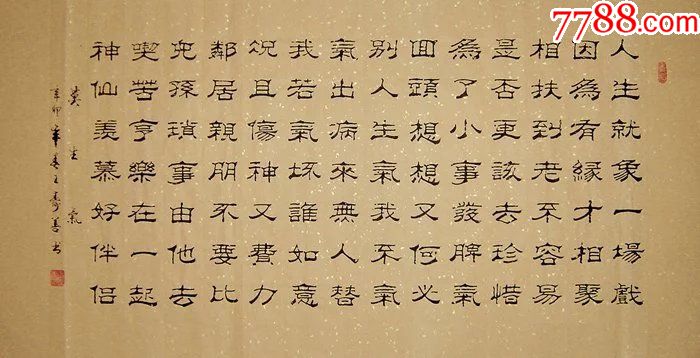 7788.com
中国收藏热线
人生就象一場戲
因為有緣才相聚
相扶到老不容易
是否更該去珍惜
為了小事發脾氣
回頭想想又何必
別人生氣我不氣
氣出病來無人替
我若氣坏誰如意
況且傷神又費力
鄰居親朋不要比
兒孫瑣事由他去
喫苦享樂在一起
神仙羨慕好伴侶
莫生氣
辛卯年春王壽善书